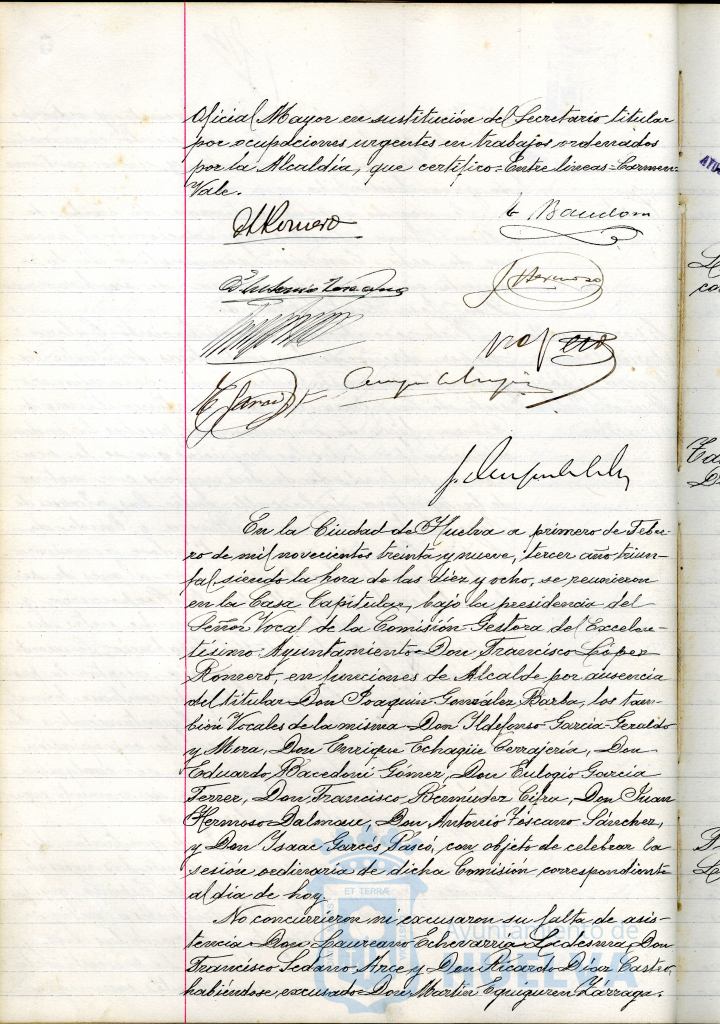 Oficial Mayor en sustitución del Secretario titular
por ocupaciones urgentes en trabajos ordenados
por la Alcaldía, que certifico=Entre lineas=Carmen=
Vale.
Romero
Hermoso
En la Ciudad de Huelva a primero de Febre-
ro de mil novecientos treinta y nueve, tercer año triun-
fal, siendo la hora de las diez y ocho, se reunieron
en la Casa Capitular, bajo la presidencia del
Señor Vocal de la Comisión Gestora del Excelen-
tísimo Ayuntamiento Don Francisco López
Romero, en funciones de Alcalde por ausencia
del titular Don Joaquín González Barba, los tam-
bién Vocales de la misma Don Ildefonso García Geraldo
y Mora, Don Enrique Echagüe Cerrajería, Don
Eduardo Bacedoni Gómez, Don Eulogio García
Ferrer, Don Francisco Bermúdez Cifra, Don Juan
Hermoso Dalmau, Don Antonio Toscano Sánchez,
y Don Isaac Garcés Pasco, con objeto de celebrar la
sesión ordinaria de dicha Comisión correspondiente
al día de hoy.
ET TERRÆ
No concurrieron ni excusaron su falta de asis-
Ayuntamiento de
tencia Don Laureano Echevarría Ledesma, Don
HUELVA
Francisco Sedano Arce y Don Ricardo Díaz Castro,
habiéndose excusado Don Martín Eguiguren Zárraga.